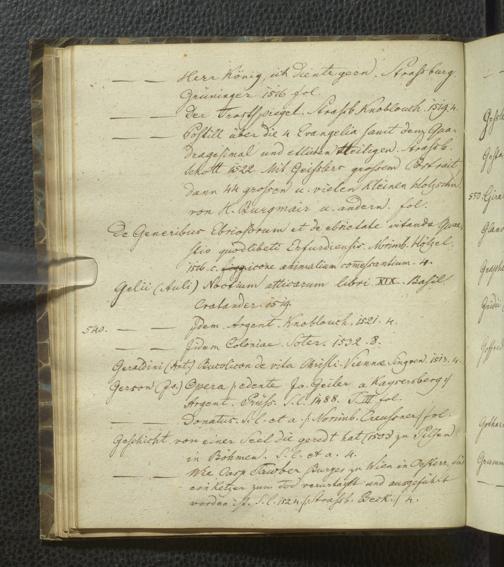 — — Herr König, ich diente geen. Strassburg.
Grüninger 1516 fol.
— — Der Trostspiegel. Strassb. Knoblouch. 1519. 4.
— — Postill über die 4 Evangelia samt dem Qua-
dragesimal und ettlichen Heiligen. Strassb.
Schott 1522. Mit Geisslers grossem Portrait
dann 44 grossen u. vielen kleinen Holzschn.
von H. Burgmair u. andern. fol.
De Generibus Ebriosorum et de ebrietate vitanda Quae-
stio quodlibeti Erfurdiensis. Norimb. Hölzel.
1516. c. icone animalium comessantium. 4.
Gelii (Auli) Noctium atticarum libri XIX. Basil
Cratander. 1519.
540. — — Idem. Argent. Knoblouch. 1521. 4.
— — Iidem Coloniae. Soter. 1532. 8.
Geraldini (Ant.) Bucolicon de vita Christi. Viennae Singren. 1513. 4.
Gerson (Jo.) Opera (edente Jo. Geiler a Kaysersberg)
Argent. Prüss. S. l. 1488. fol.
— — Donatus. S. l. et a. (Norimb. Creussner) fol.
Geschicht von einer Seel die geredt hat (1503) zu Pilsen
in Böhmen. S. l. et a. 4.
— — Wie Casp. Tawber Burger zu Wien in Osterr. für
ain ketzer zum tod verurtailt und aussgefuhrt
worden ist. S. l. 1524 (Strassb. Beck.) 4.
550.